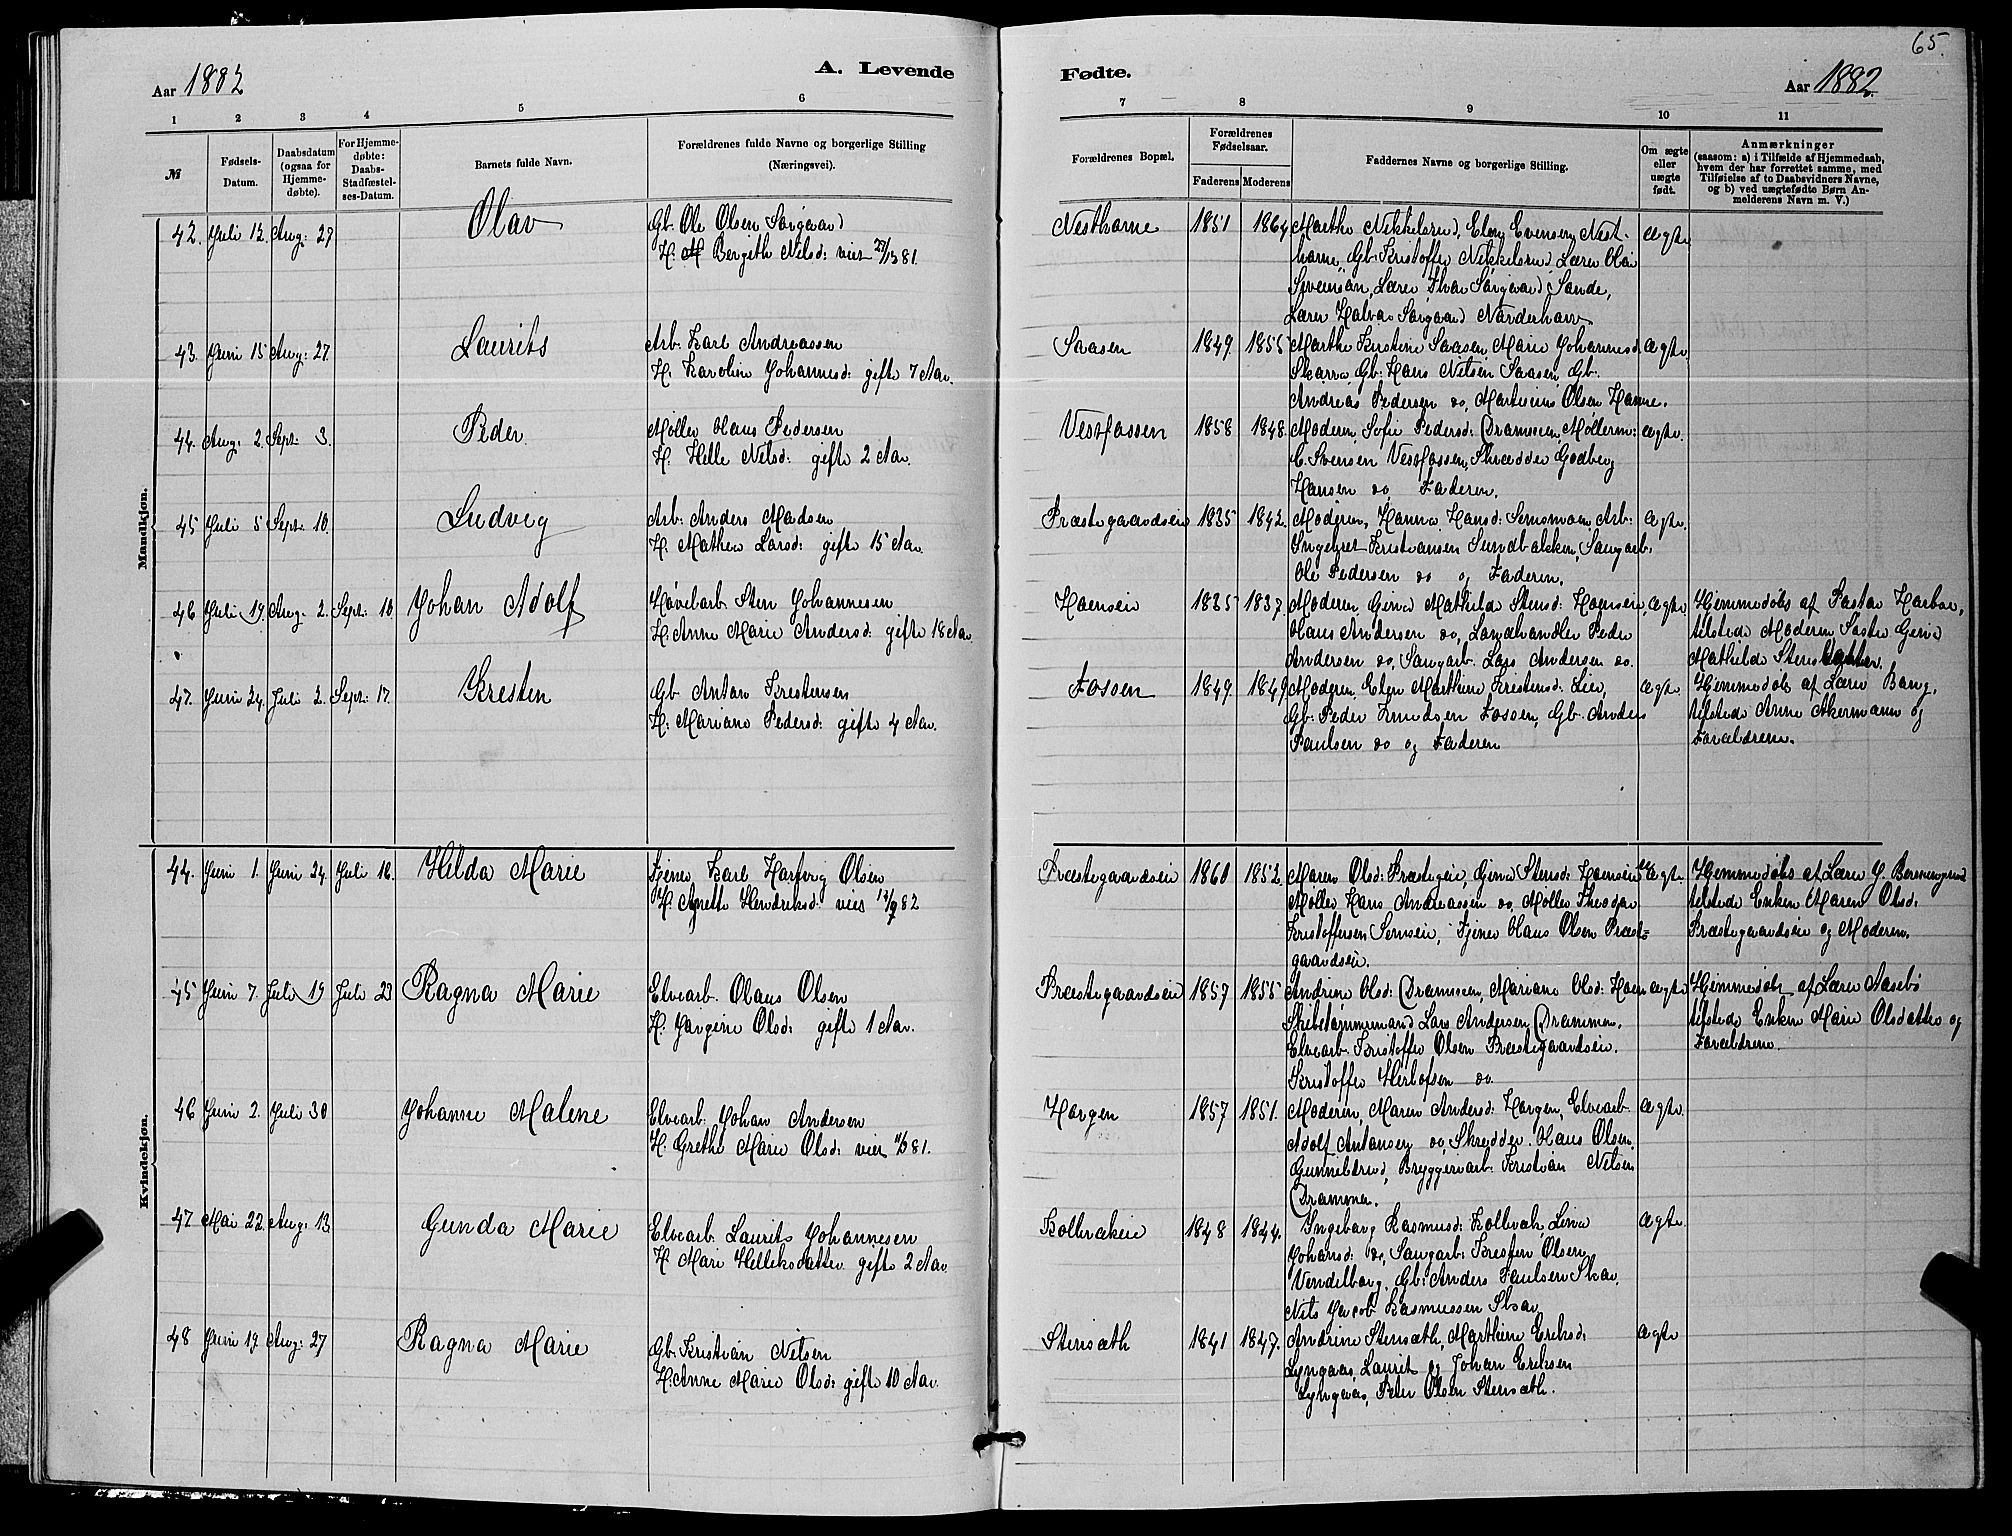 65.
Aar 1882
A. Levende
Fødte.
Aar 1882
1 2 3 4 5 6
7 8 9 10 11
№
Fødsels-Datum.
Daabsdatum (ogsaa for Hjemme-døbte).
For Hjemme-døbte: Daabs-Stadfæstel-ses-Datum.
Barnets fulde Navn.
Forældrenes fulde Navne og borgerlige Stilling
(Næringsvei).
Forældrenes Bopæl.
Forældrenes Fødselsaar.
Faderens Moderens
Faddernes Navne og borgerlige Stilling.
Om ægte eller uægte født.
Anmærkninger
(saasom: a) i Tilfælde af Hjemmedaab,
hvem der har forrettet samme, med
Tilføielse af to Daabsvidners Navne,
og b) ved uægtefødte Børn An-
melderens Navn m. V.)
Mandkjøn.
42. Juli 12. Aug: 27 Olav Gb. Ole Olsen Sørgaard
H: Bergith Nilsd: viet 81.
1851 1864 Marthe Nikkelsrud, Elen Evensen Nest-
Gb: Kristoffer Nikkelsrud, Lærer Olai
Svensen, Lærer Sørgaard Sande,
Lærer Halvor Sørgaard
ægte
43. Juni 15 Aug: 27. Laurits Arb. Karl Andreassen
H. Karoline Johannesd: gifte 7 Aar.
Saasen 1849 1855 Marthe Kristine Saasen, Marie Johannesd.
Gb: Hans Nilsen Saasen, Gb.
Andreas Pedersen do, Martinius Olsen
ægte
44. Aug: 2. Sept: 3. Peder Møller Hans Pedersen
H. Helle Nilsd: gifte 2 Aar.
Vestfossen 1858 1848. Moderen, Sofie Pedersd: Drammen, Møllerm:
C. Svensen Vestfossen, Skrædder Godberg
Hansen do, Faderen.
ægte.
45 Juli 5 Sept: 10. Ludvig Arb: Anders Madsen
H. Mathea Larsd: gifte 15 Aar.
Præstegaardseie 1835 1842. Moderen, Hanna Hansd: Arb:
Ingebret Kristiansen Sundbakken, Saugarb.
Ole Pedersen do og Faderen.
ægte.
46 Juli 19. Aug: 2. Sept: 10 Johan Adolf Høvelarb. Sten Johannesen
H. Anne Marie Andersd: gifte 18 Aar.
Hoenseie 1835 1837. Moderen, Gina Mathilde Stensd: Hoenseie,
Hans Andersen do, Landhandler Peder
Andersen do, Saugarb. Lars Andersen do.
ægte. Hjemmedøbt af Pastor
tilstede Moderen, Gina
Mathilde
47. Juni 24. Juli 2. Sept: 17. Kresten Gb. Anton Krestensen
H: Mariane Pedersd: gifte 4 Aar.
Fossen 1849 1849 Moderen, Elen Marthine Kristensd: Lier,
Gb: Peder Knudsen Fossen, Gb. Anders
Paulsen do og Faderen
ægte. Hjemmedøbt af Lærer Bang,
tilstede Anne Akermann og
Forældrene.
Kvindekjøn.
44. Juni 1. Juni 24. Juli 16. Hilda Marie Tjener Karl Hartvig Olsen
H. Agnette Hendriksd: viet 82
Præstegaardseie 1860 1852. Maren Olsd: Præstegeie, Gina Stensd: Hoenseie
Møller Hans Andreassen do, Møller Theodor
Kristoffersen Semseie, Tjener Hans Olsen Præst-
gaardseie.
ægte. Hjemmedøbt af Lærer
tilstede Enken Maren Olsd:
Præstegaardseie og Moderen.
45 Juni 7. Juli 19 Juli 23 Ragna Marie Elvearb. Olaus Olsen
H. Jørgine Olsd: gifte 1 Aar.
Præstegaardseie 1857 1855 Andrine Olsd: Drammen, Mariane Olsd: Hoen
Skibstømmermand Lars Andersen Drammen.
Elvearb. Kristoffer Olsen Præstegaardseie.
Kristoffer Herlofsen do.
ægte Hjemmedøbt af Lærer Aasebø
tilstede Enken Marie Olsdatter og
Forældrene.
46 Juni 2. Juli 30 Johanne Malene Elvearb. Johan Andersen
H. Grethe Marie Olsd: viet 81.
Horgen 1857 1851. Moderen, Maren Andersd: Horgen, Elvearb.
Adolf Antonsen do, Skredder Hans Olsen
Gunnildrud, Bryggeriarb: Kristian Nilsen
Drammen.
ægte.
47 Mai 22. Aug: 13. Gunda Marie Elvearb. Laurits Johannesen
H. Mari Helleksdatter gifte 2 Aar.
Kolbrækeie 1848 1844. Ingeborg Rasmusd: Kolbræk, Lina
Johansd: do, Saugarb: Kresten Olsen
Vendelborg, Gb: Anders Paulsen Skar.
Nils Jacob Rasmussen Skar
ægte.
48 Juni 19. Aug: 27 Ragna Marie Gb: Kristian Nilsen
H: Anne Marie Olsd: gifte 10 Aar.
Stensæth 1841 1847. Andrine Stensæth, Marthine Eriksd:
Lyngaas, Laurit og Johan Eriksen
Lyngaas, Peter Olsen Stensæth.
ægte